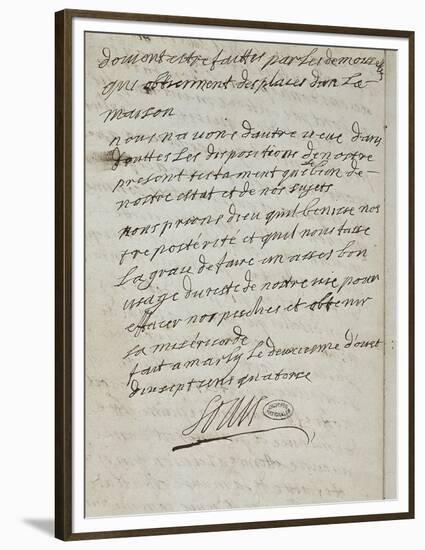 doivent estre faittes par les demoiselles
qui obtiennent des places dans la
maison
nous n avons d autre veue dans
touttes les dispositions de nostre
present testament que le bien de
nostre estat et de nos sujets
nous prions dieu qu il benisse nos
tre postérité et qu il nous fasse
la grace de faire un asses bon
usage du reste de nostre vie pour
effacer nos peschés et obtenir
sa miséricorde
fait a marly le deuxiesme d'oust
dix sept cens quatorse
Louis